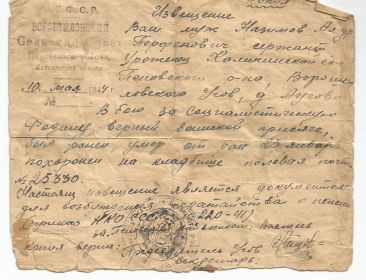 Р.С.Ф.С.Р.
ВОРОШИЛОВСКИЙ
Сельский Совет
Копия
Извещение
Ваш муж Назимов
Парфенович сержант
Уроженец Калининской об
Пеновского р-на, Вороши
10 мая 194
ловского с/сов, д.
№
В бою за Социалистическую
Родину, верный воинской присяге,
был ранен, умер от ран 25 января
похоронен на кладбище полевая почт
№ 25330.
Настоящ извещение является документом
для возбуждения ходатайства о пенсии
(приказ НКО СССР № 220-41)
копия верна: Председатель
секретарь